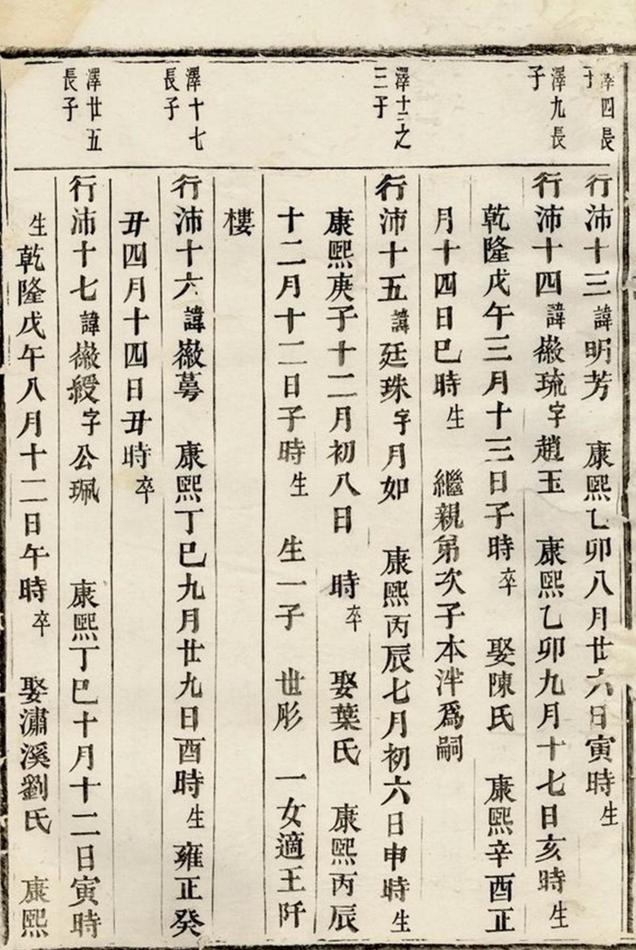 澤四長
子
行沛十三諱明芳　康熙乙卯八月廿六日寅時生
澤九長
子
行沛十四諱㩭琉字趙玉　康熙乙卯九月十七日亥時生
乾隆戊午三月十三日子時卒　娶陳氏　康熙辛酉正
月十四日巳時生　繼親弟次子本泮爲嗣
澤十二之
三子
行沛十五諱廷珠字月如　康熙丙辰七月初六日申時生
康熙庚子十二月初八日　時卒　娶葉氏　康熙丙辰
十二月十二日子時生　生一子　世彤　一女適王阡
樓
澤十七
長子
行沛十六諱㩭蕚　康熙丁巳九月廿九日酉時生　雍正癸
丑四月十四日丑時卒
澤廿五
長子
行沛十七諱㩭綬字公珮　康熙丁巳十月十二日寅時
生　乾隆戊午八月十二日午時卒　娶瀟溪劉氏　康熙